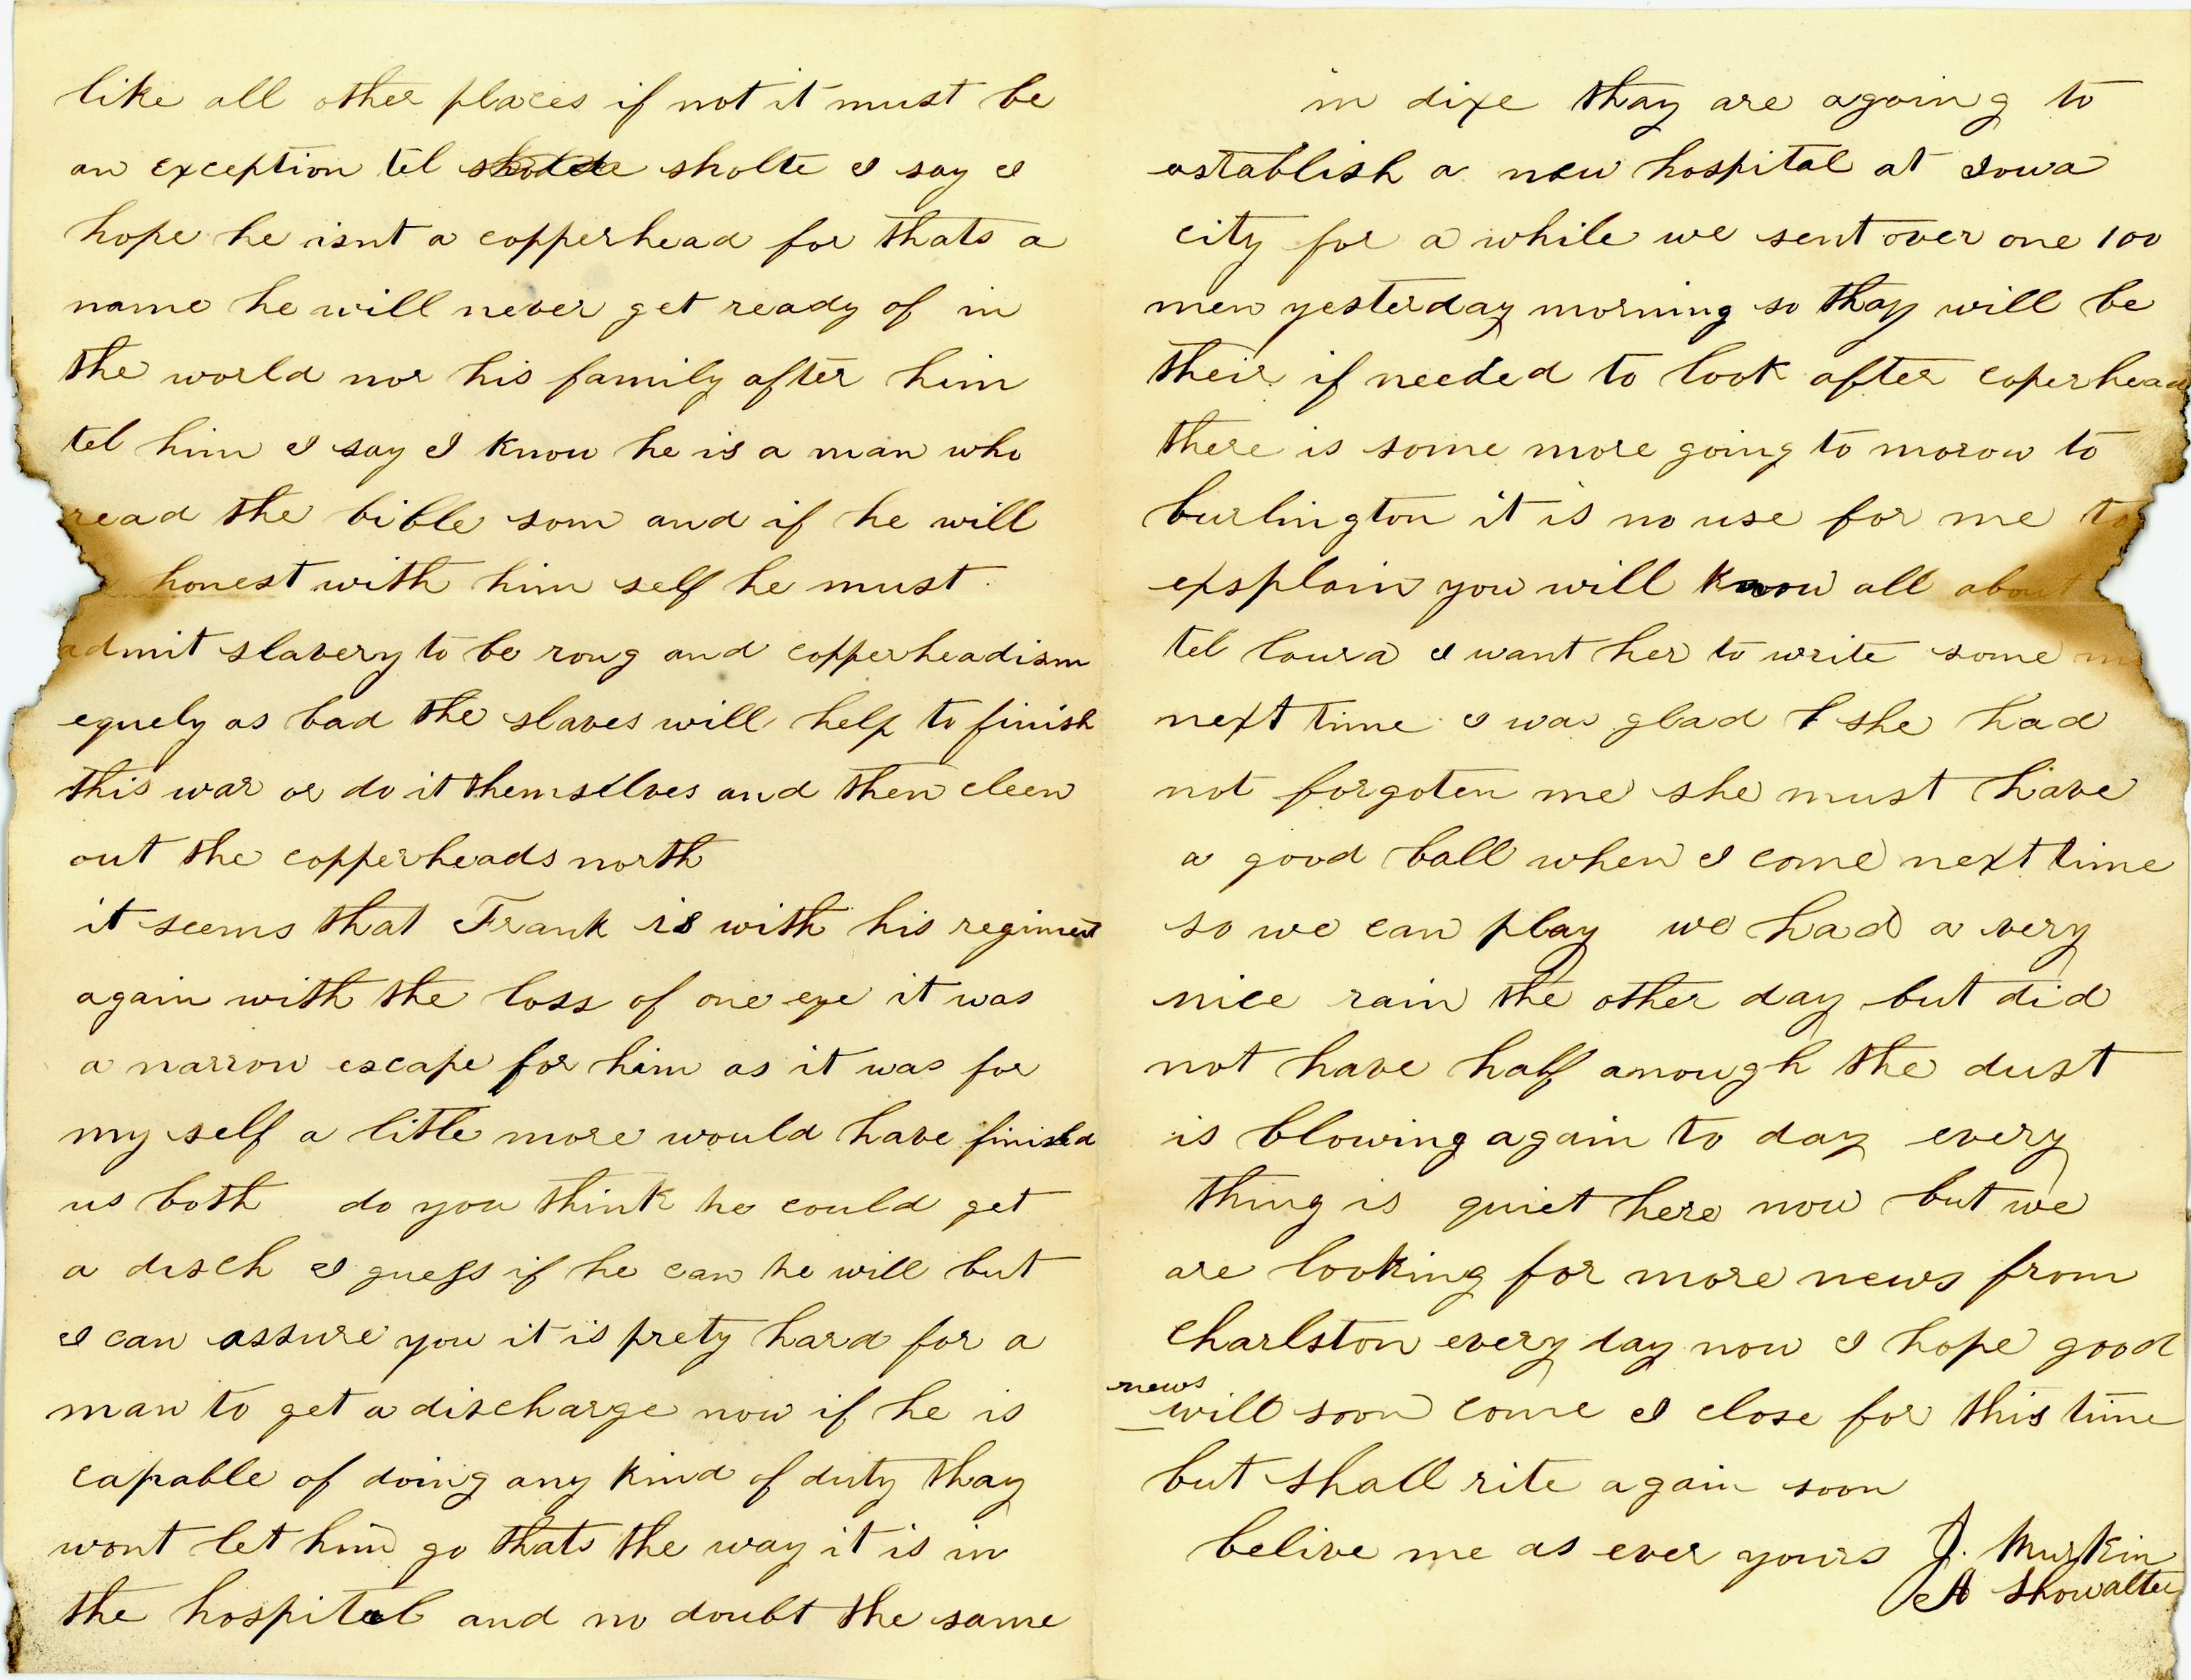 like all other places if not it must be
an exception tel sholte I say I
hope he isnt a copperhead for thats a
name he will never get ready of in
the world nor his family after him
tel him I say I know he is a man who
read the bible som and if he will
honest with him self he must
admit slavery to be rong and copperheadism
equely as bad the slaves will help to finish
this war or do it themselves and then cleen
out the copperheads north
it seems that Frank is with his regiment
again with the loss of one eye it was
a narrow escape for him as it was for
my self a litle more would have finishd
us both do you think he could get
a disch I guess if he can he will but
I can assure you it is prety hard for a
man to get a discharge now if he is
capable of doing any kind of duty thay
wont let him go thats the way it is in
the hospital and no doubt the same
in dixe thay are agoing to
astablish a new hospital at Iowa
city for a while we sent over one 100
men yesterday morning so thay will be
their if needed to look after coperhead
there is some more going to morow to
burlington it is no use for me to
exsplain you will know all about
tel laura I want her to write some
next time I was glad she had
not forgoten me she must have
a good ball when I come next time
so we can play we had a very
nice rain the other day but did
not have half anough the dust
is blowing again to day every
thing is quiet here now but we
are looking for more news from
Charlston every day now I hope good
news
will soon come I close for this time
but shall rite again soon
belive me as ever yours J. Murkin
A Showalter